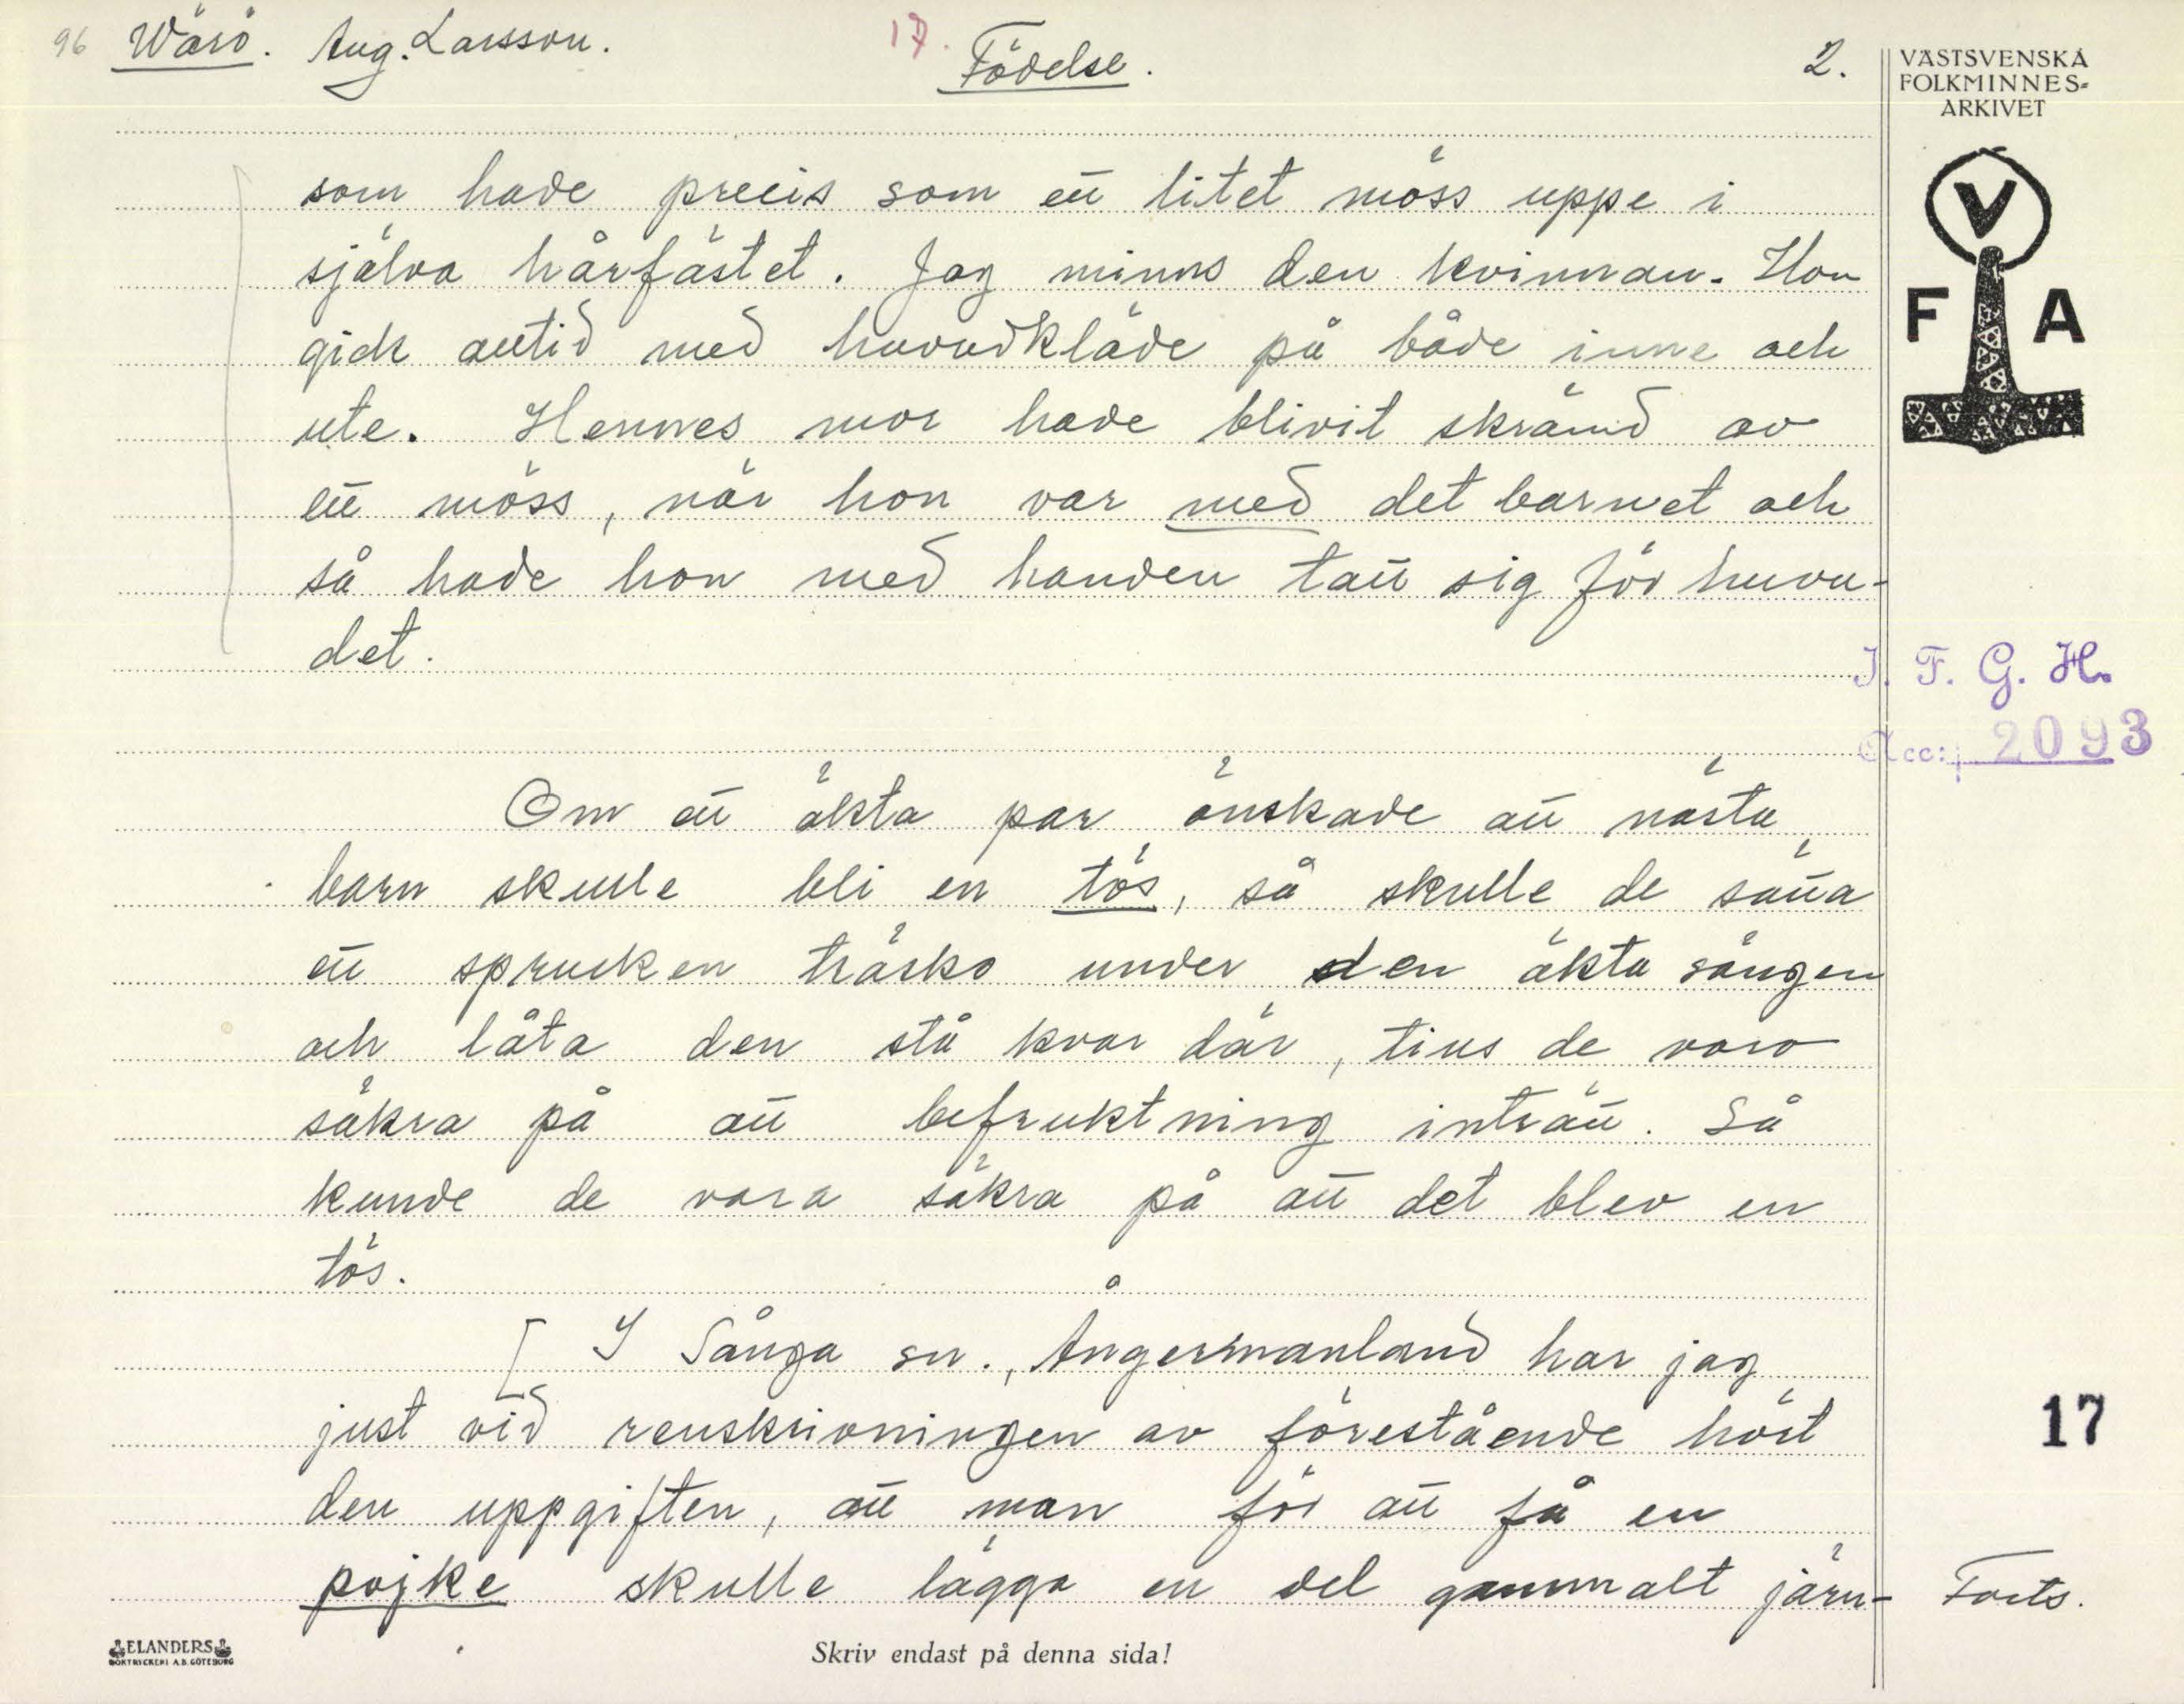 96 Wärö. Aug. Larsson. 17. Födelse. 2.
VÄSTSVENSKA
FOLKMINNES-
ARKIVET
V
F A
som hade precis som ett litet möss uppe i
själva hårfästet. Jag minns den kvinnan. Hon
gick alltid med huvudkläde på både inne och
ute. Hennes mor hade blivit skrämd av
ett möss, när hon var med det barnet och
så hade hon med handen tatt sig för huvu-
det.
I. F. G. H.
Acc: 2093
Om ett äkta par önskade att nästa
barn skulle bli en tös, så skulle de sätta
en sprucken träsko under den äkta sängen
och låta den stå kvar där, tills de voro
säkra på att befruktning inträtt. Så
kunde de vara säkra på att det blev en
tös.
[ I Sånga sn., Ångermanland har jag
just vid renskrivningen av förestående hört
17
den uppgiften, att man för att få en
pojke skulle lägga en del gammalt järn-
Forts.
ELANDERS
BOKTRYCKERI A.B. GÖTEBORG
Skriv endast på denna sida!